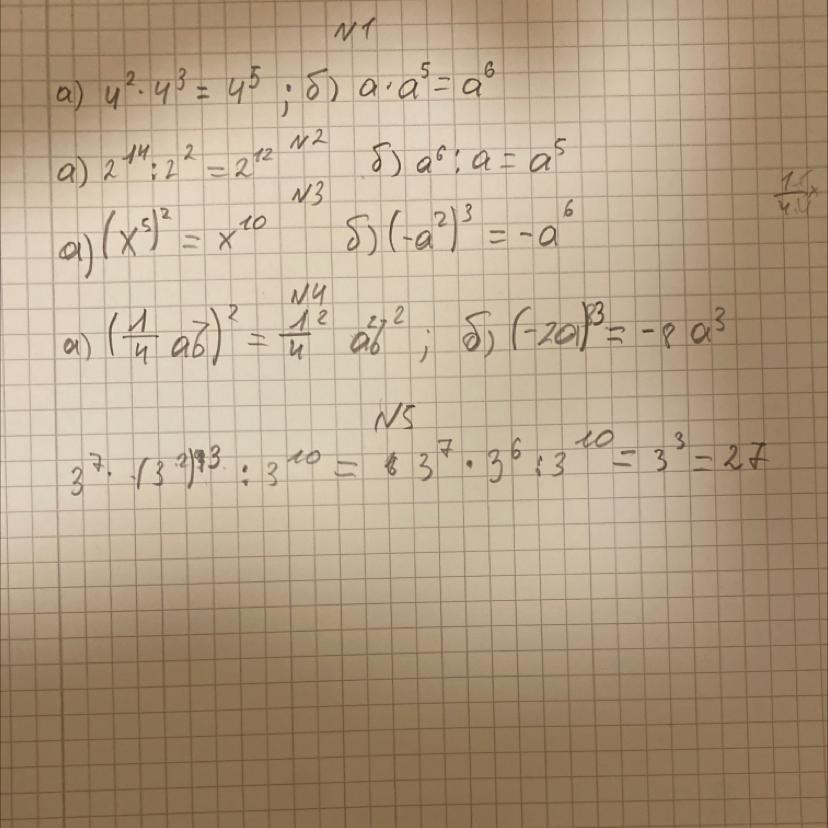 N1
а) 4² · 4³ = 4⁵ ; б) a · a⁵ = a⁶
N2
а) 2¹⁴ : 2² = 2¹² б) a⁶ : a = a⁵
N3
а) (x⁵)² = x¹⁰ б) (-a²)³ = -a⁶
N4
а) (1/4 ab)² = 1²/4 a²b² ; б) (-2a)³ = -8 a³
N5
3⁷ · (3²)³ : 3¹⁰ = 3⁷ · 3⁶ : 3¹⁰ = 3³ = 27